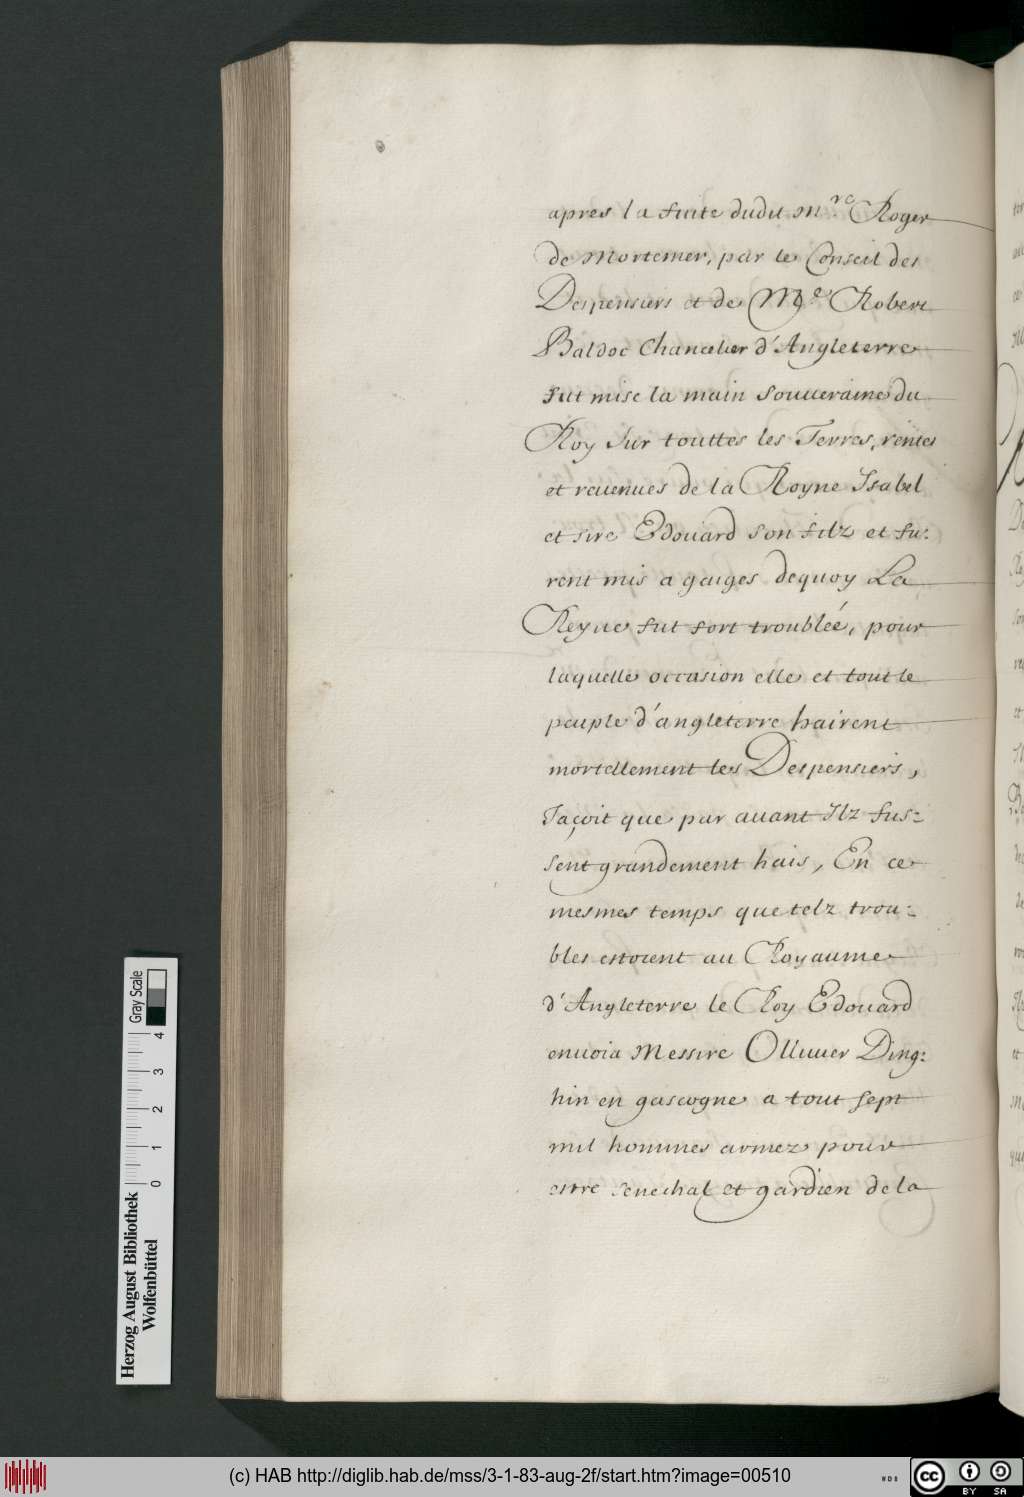 apres la fuite dudit M.re Roger
de Mortemer, par le Conseil des
Despensiers et de Mg.e Robert
Baldoc Chancelier d'Angleterre
fut mise la main souueraine du
Roy sur touttes les Terres, rentes
et reuenues de la Royne Isabel
et sire Edouard son filz et fu:
rent mis a gaiges dequoy La
Reyne fut fort troublée, pour
laquelle occasion elle et tout le
peuple d'angleterre hairent
mortellement les Despensiers,
Jaçoit que par auant Ilz fus:
sent grandement hais, En ce
mesmes temps que telz trou:
bles estoient au Royaume
d'Angleterre le Roy Edouard
enuoia Messire Olliuier Ding:
hin en gascogne a tout sept
mil hommes armez pour
estre senechal et gardien de la
Gray Scale
0 1 2 3 4
Herzog August Bibliothek
Wolfenbüttel
(c) HAB http://diglib.hab.de/mss/3-1-83-aug-2f/start.htm?image=00510
WDB
cc
BY SA